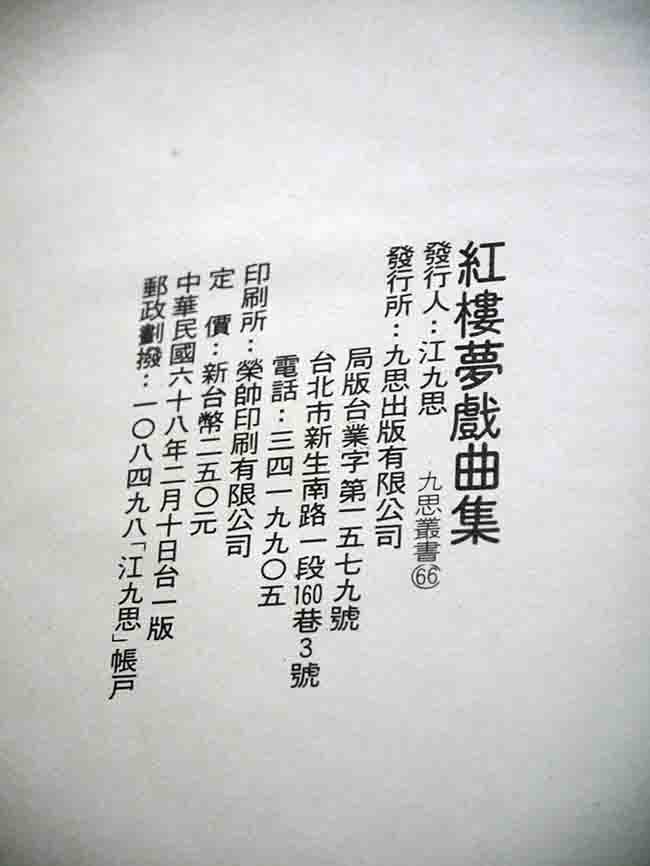 紅樓夢戲曲集
九思叢書66
發行人：江九思
發行所：九思出版有限公司
局版台業字第一五七九號
台北市新生南路一段160巷3號
電話：三四一九九〇五
印刷所：榮帥印刷有限公司
定　價：新台幣二五〇元
中華民國六十八年二月十日台一版
郵政劃撥：一〇八四九八「江九思」帳戶